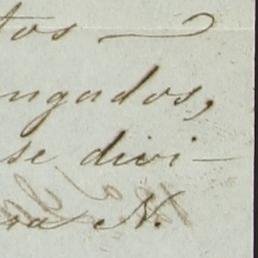 tos
ngados,
se divi-
N.